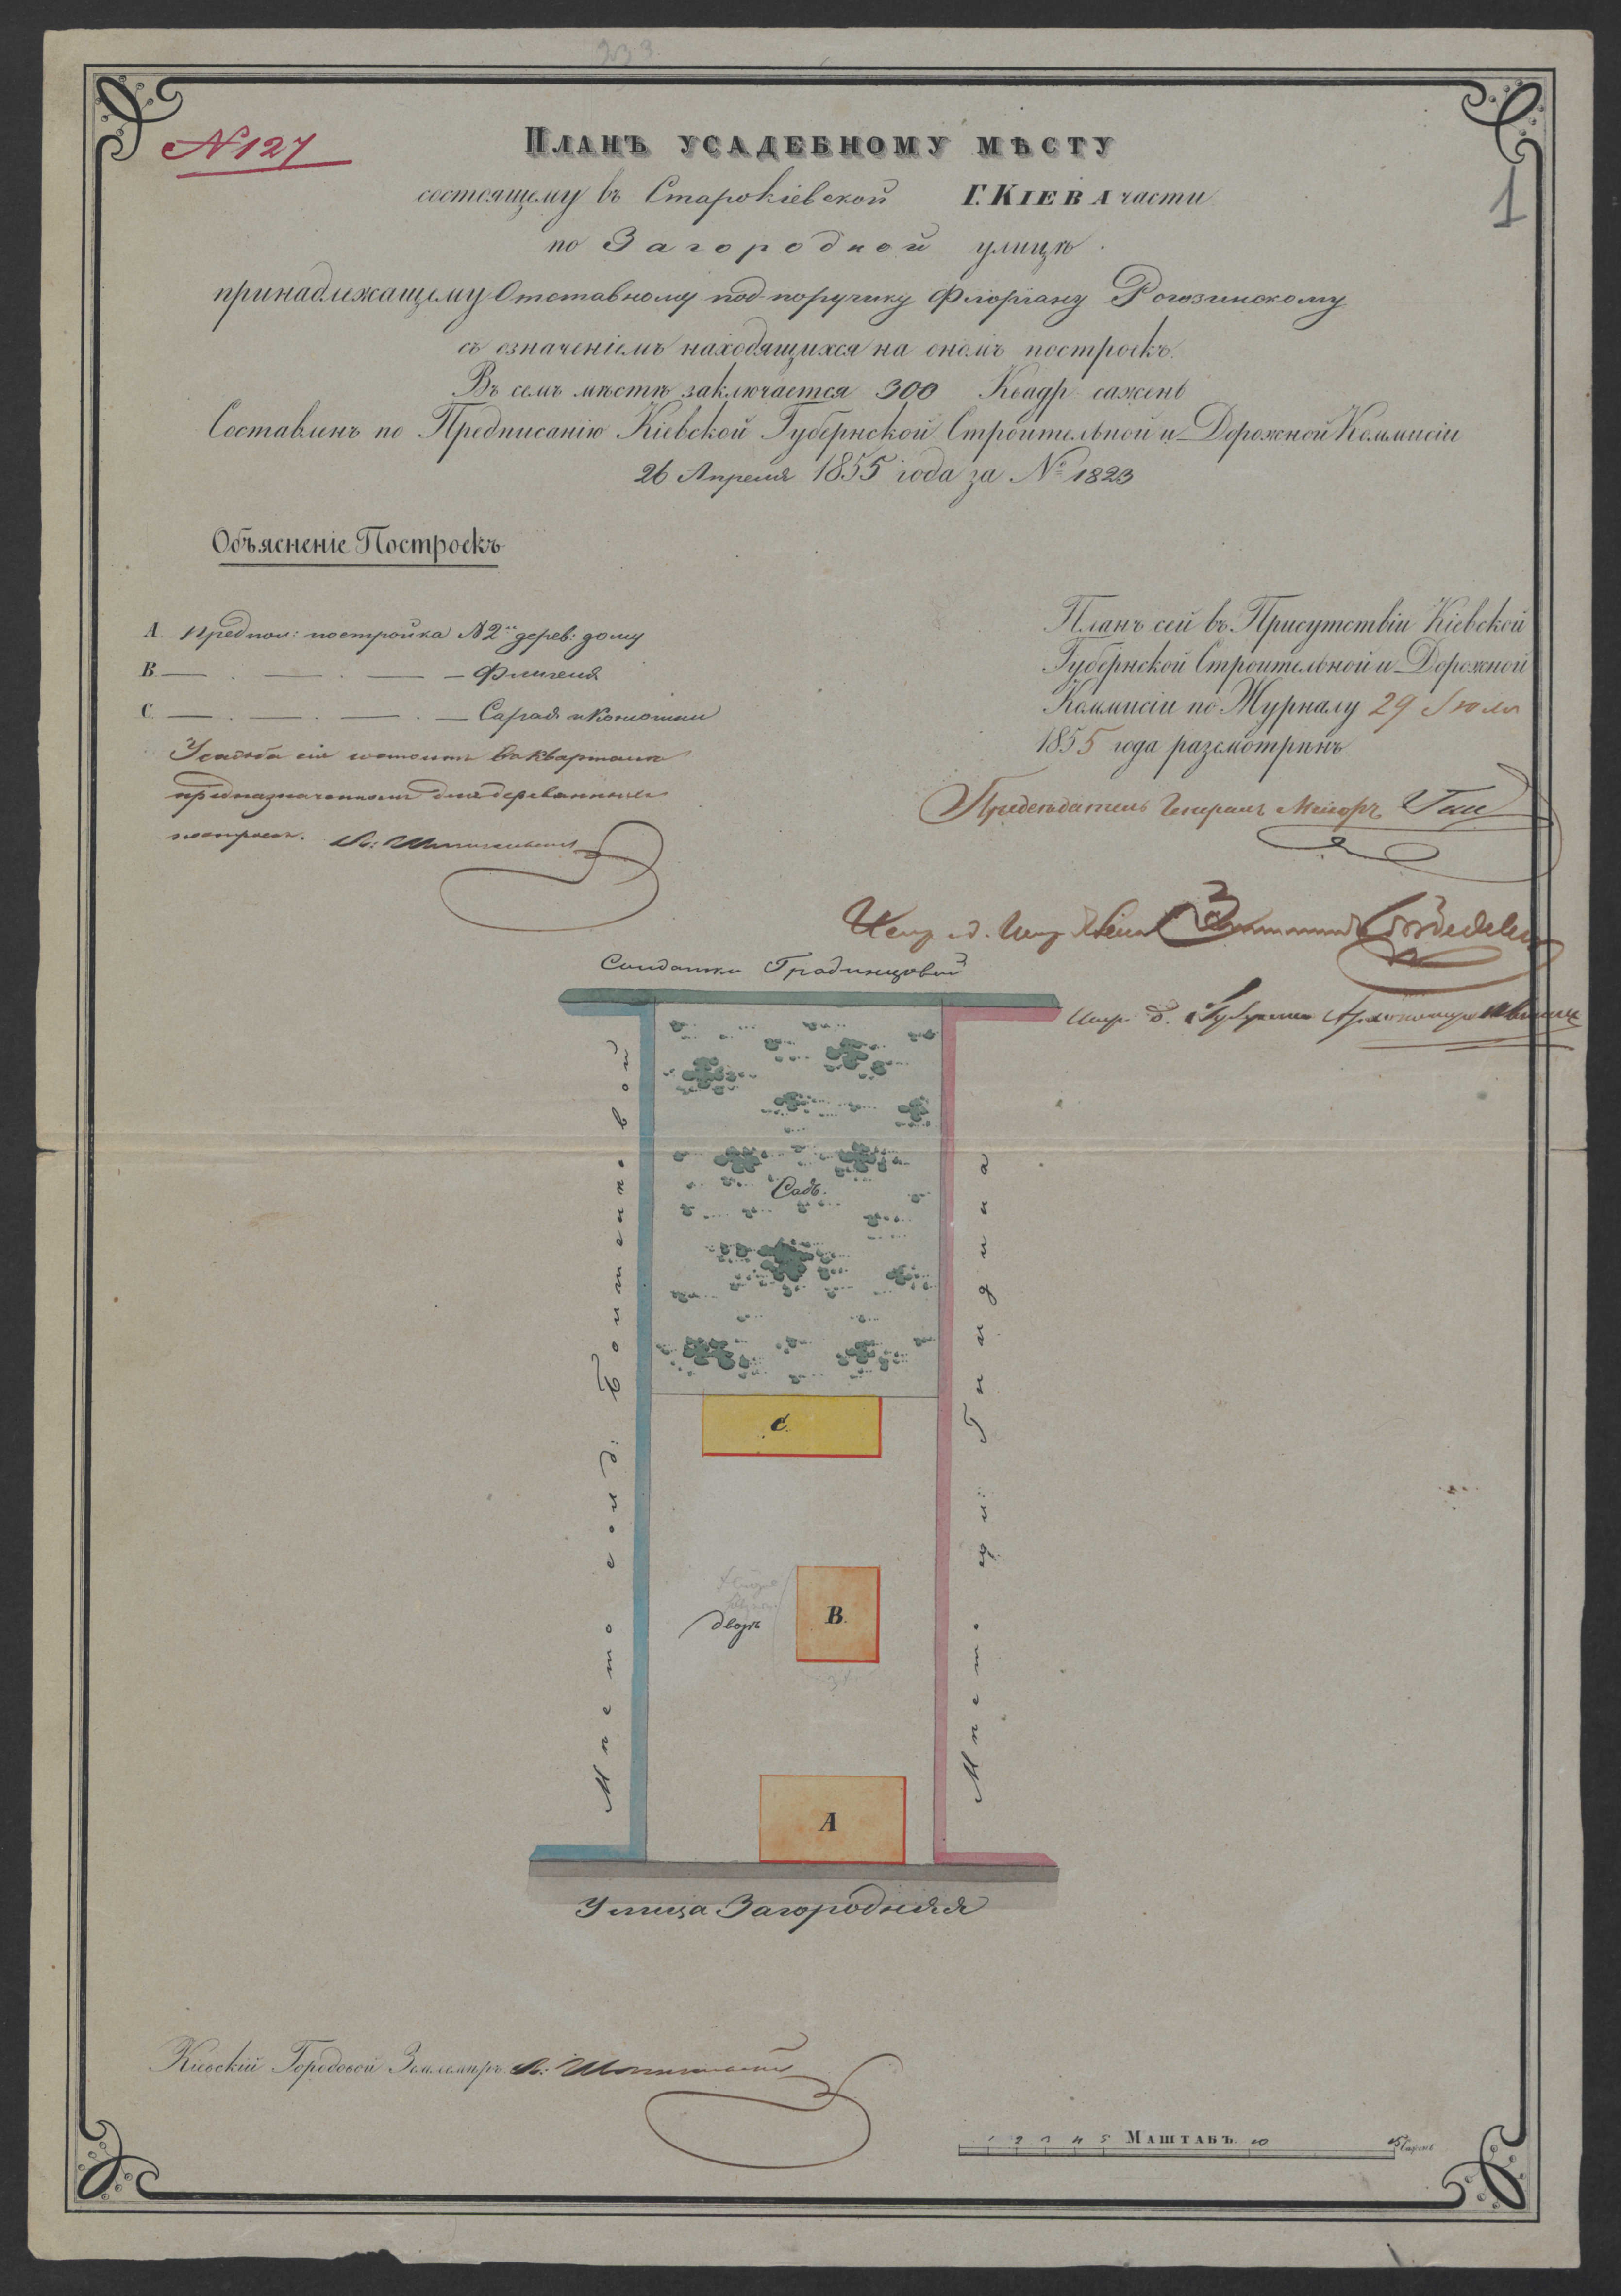 233.
N 127
1
Планъ усадебному мѣсту
состоящему въ Старокіевской Г. Кіева части
по Загородной улицѣ.
принадлежащему Отставному под-поручику Флоріану Рогозинскому
съ означеніемъ находящихся на ономъ построекъ.
Въ семъ мѣстѣ заключается 300 Квадр. сажень
Составленъ по Предписанію Кіевской Губернской Строительной и Дорожной Коммисіи
26 Апреля 1855 года за № 1823
Объясненіе Построекъ
A. Предпол: постройка N 2го дерев: дому
B. — . — . — — Флигеля
C. — . — . — . — Сарая и Конюшни
Усадьба сія состоитъ въ кварталѣ
предназначенномъ для деревянныхъ
построекъ.
Планъ сей въ Присутствіи Кіевской
Губернской Строительной и Дорожной
Коммисіи по Журналу 29 Іюля
1855 года разсмотрѣнъ
Предсѣдатель Генералъ Маіоръ
Солдатки Градинцовой
Место солд:
Место
Садъ.
C.
B.
дворъ
A
Улица Загородняя
Кіевскій Городовой Землемѣръ
1 2 3 4 5 Маштабъ. 10 15 Сажень